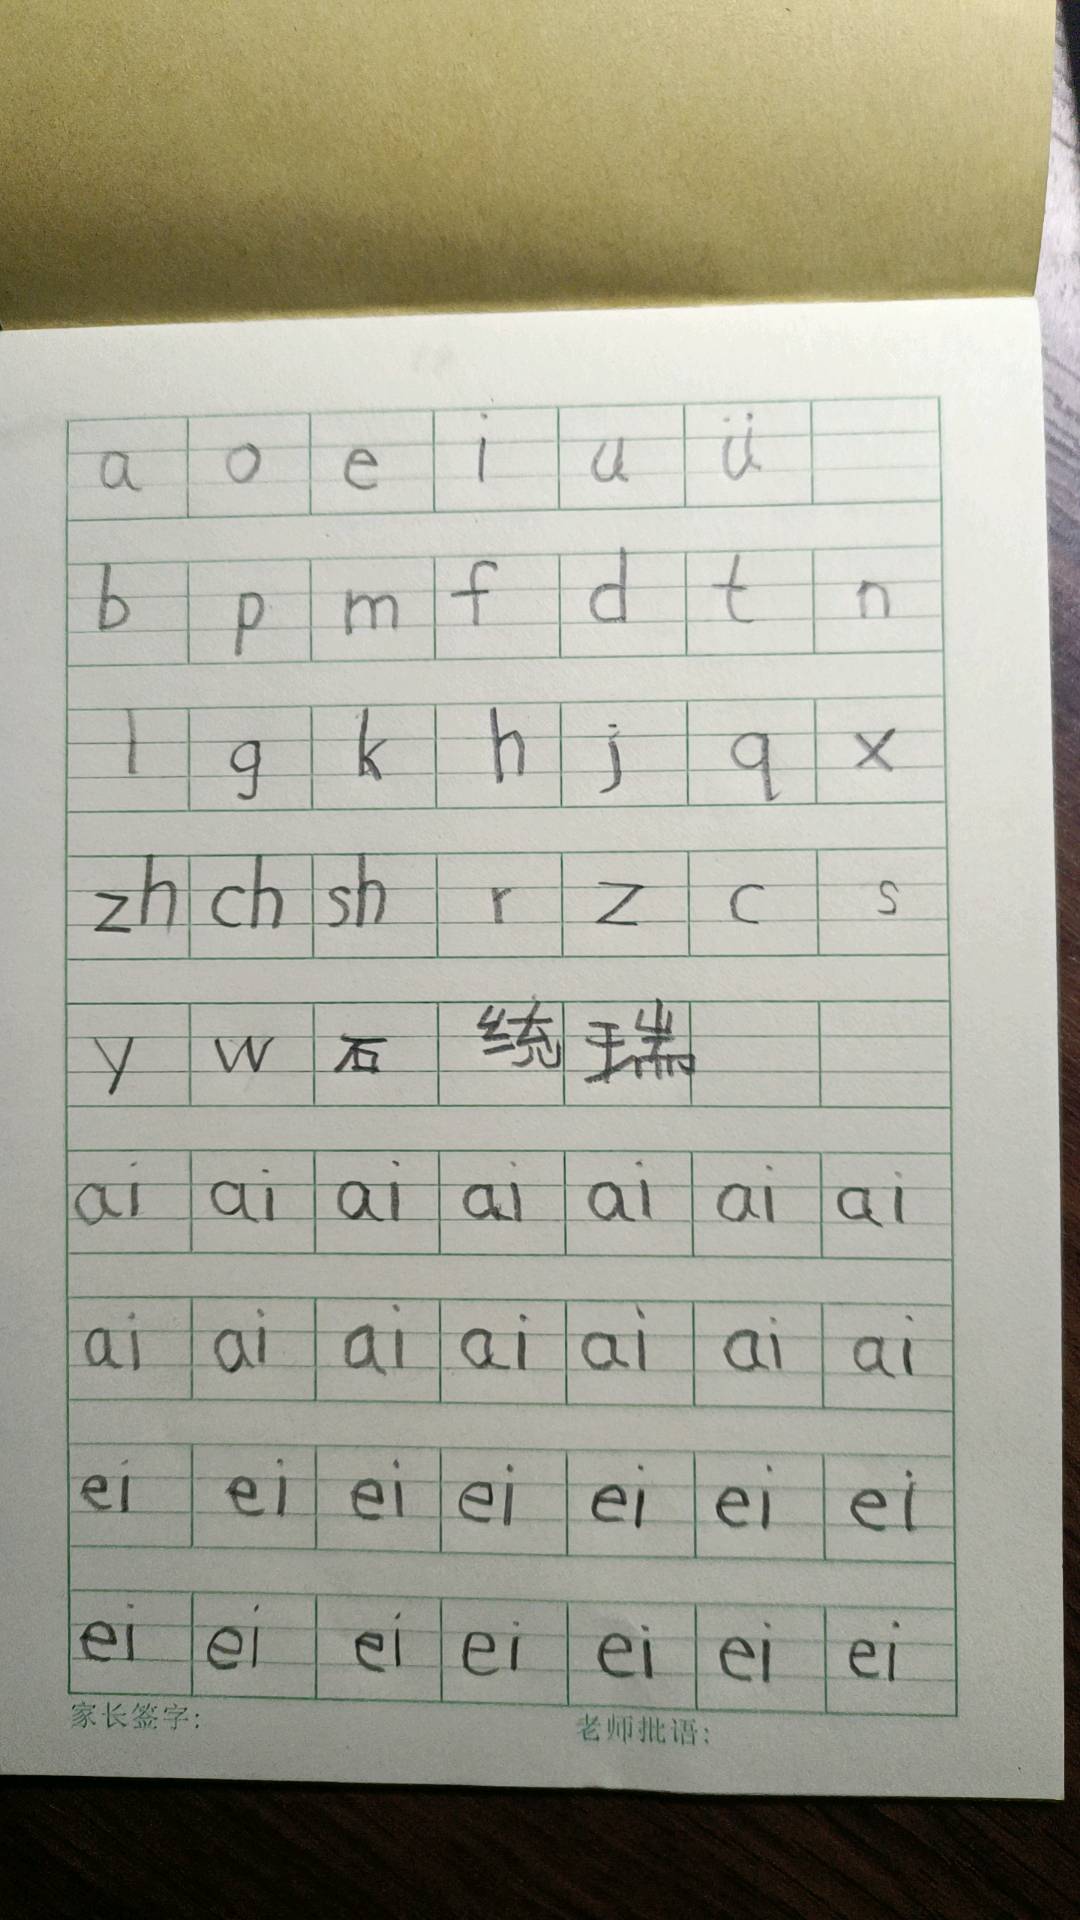 a o e i u ü
b p m f d t n
l g k h j q x
zh ch sh r z c s
y w 石 统 瑞
ai ai ai ai ai ai ai
ai ai ai ai ai ai ai
ei ei ei ei ei ei ei
ei ei ei ei ei ei ei
家长签字: 老师批语: